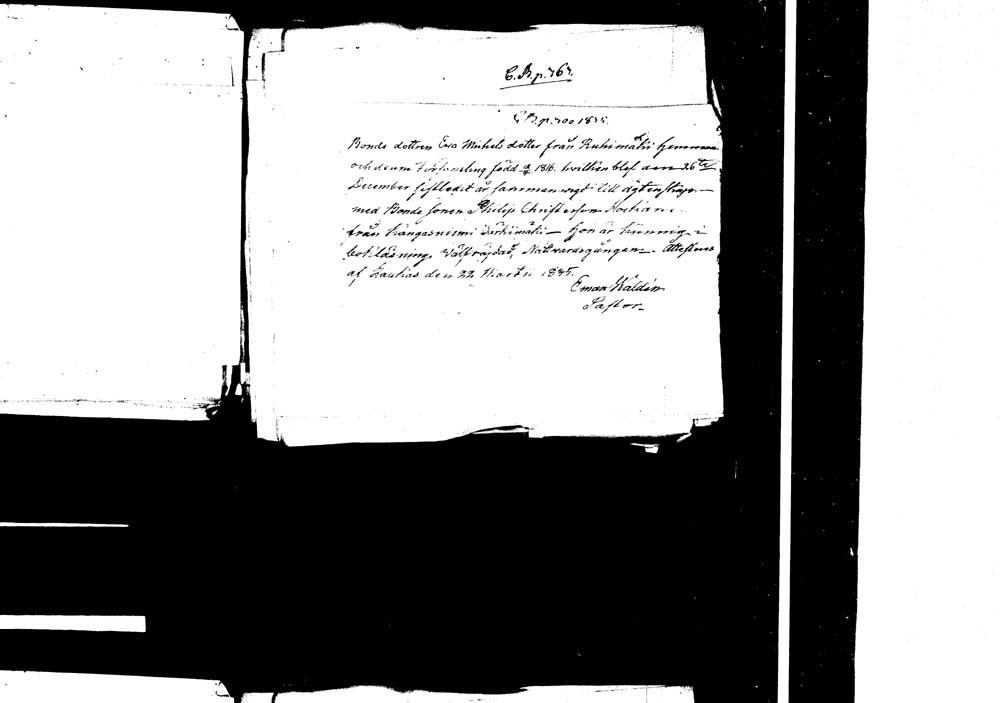 C. B. p. 767.
C. B. p. 700 1835.
Bonde dottren Eva Michels dotter från Ruhimäki hemman
och denna Församling född 1816. hvilken blef den 26te
December sistledit år sammanvigd till ägtenskap
med Bonde sonen Philip Christersson
från Kangasniemi Särkimäki — Hon är kunnig i
bokläsning, Nattvardsgången. Attesteras
af den 22 Martii 1835.
Eman Kaldén
Pastor